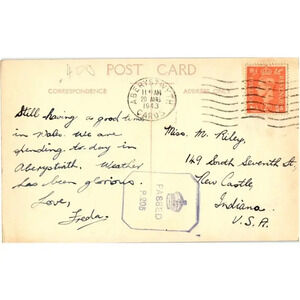 POST CARD
CORRESPONDENCE
ADDRESS
ABERYSTWYTH
AM
20 AUG
1943
CARDS
Still having a good time
in Wales. We are
spending to-day in
Aberystwith. Weather
has been glorious.
Love,
Freda.
Miss. M. Riley,
149 South Seventh St,
New Castle,
Indiana
U.S.A.
PASSED
P.205